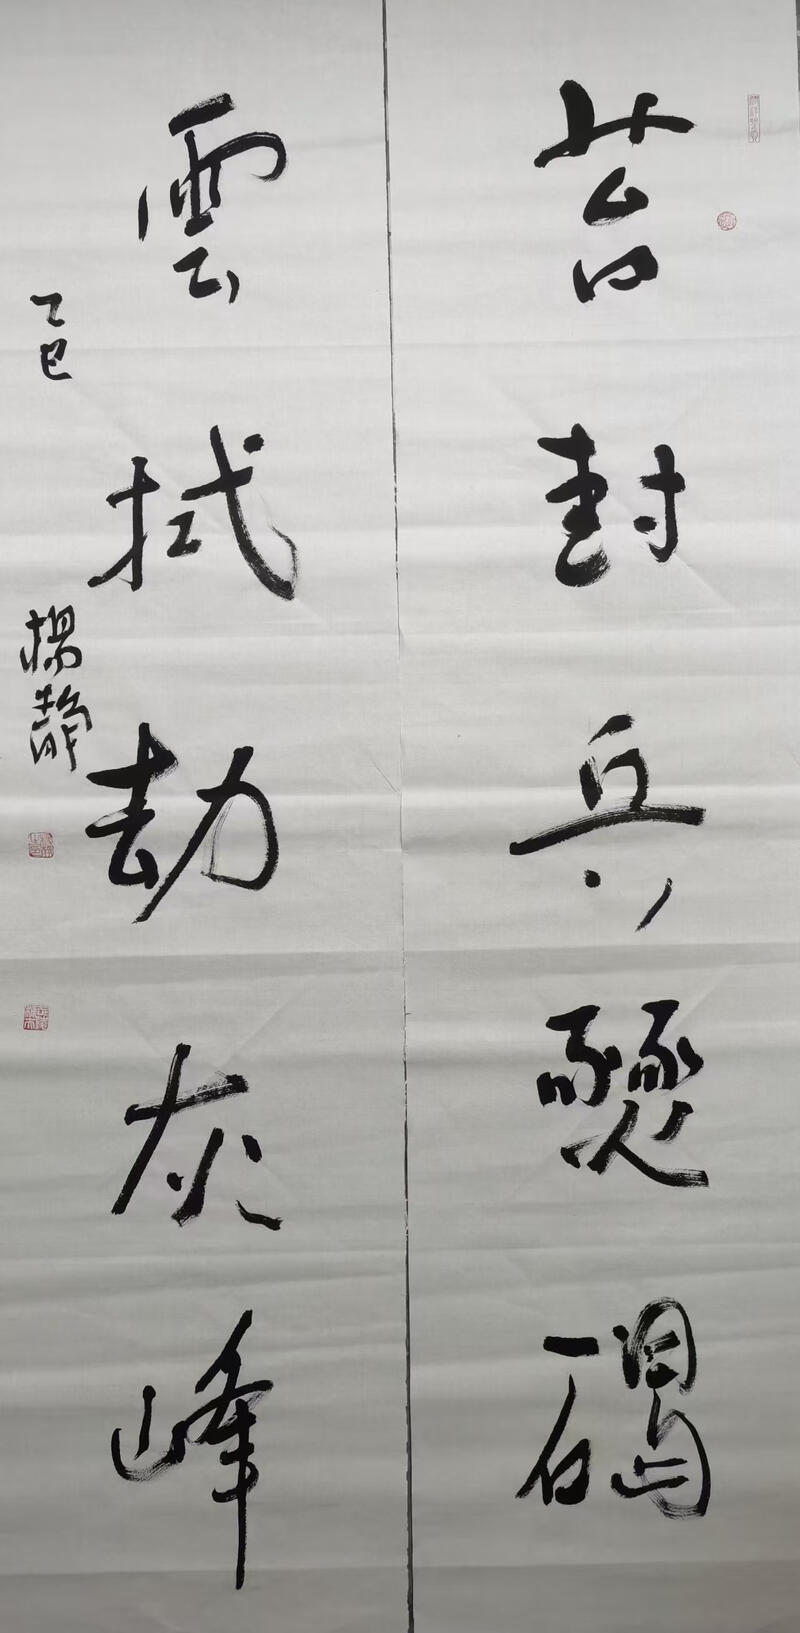 苔封兵燹碣
雲拭劫灰峰
乙巳
楊靜